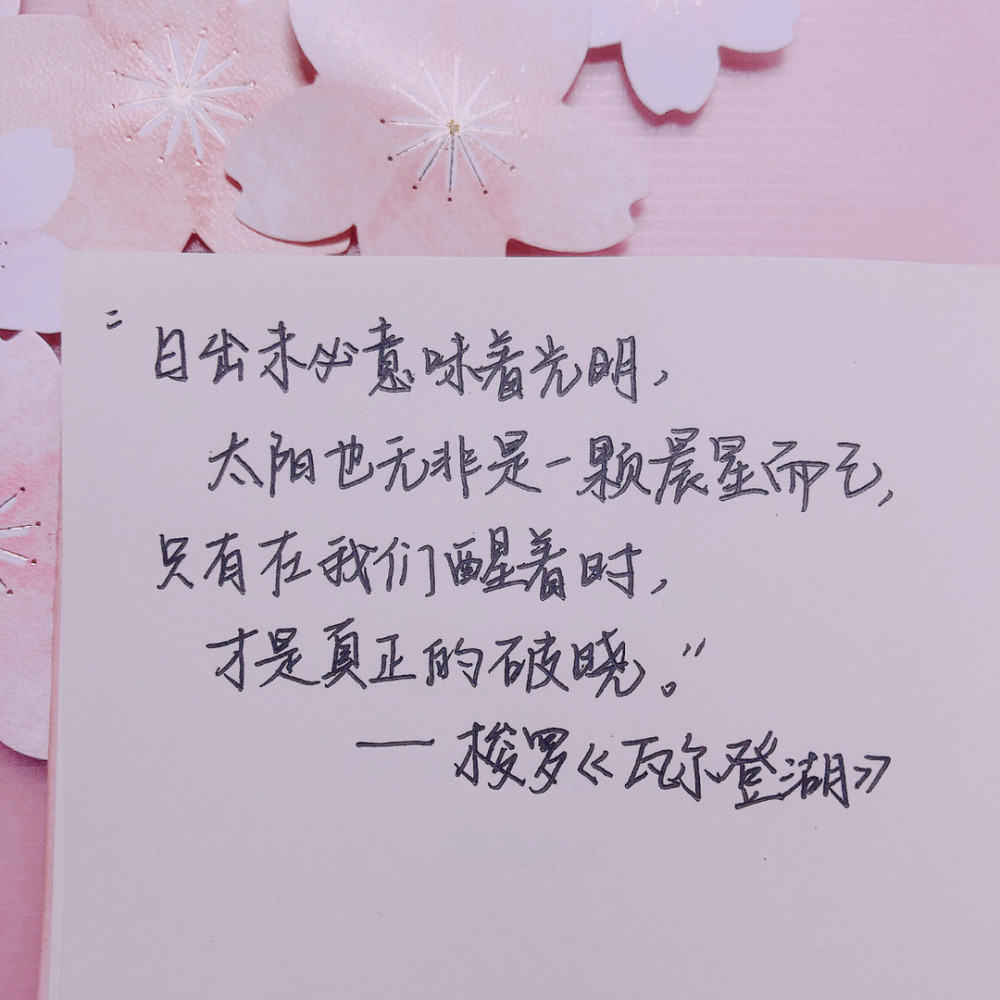 “日出未必意味着光明，
太阳也无非是一颗晨星而已，
只有在我们醒着时，
才是真正的破晓。”
——梭罗《瓦尔登湖》